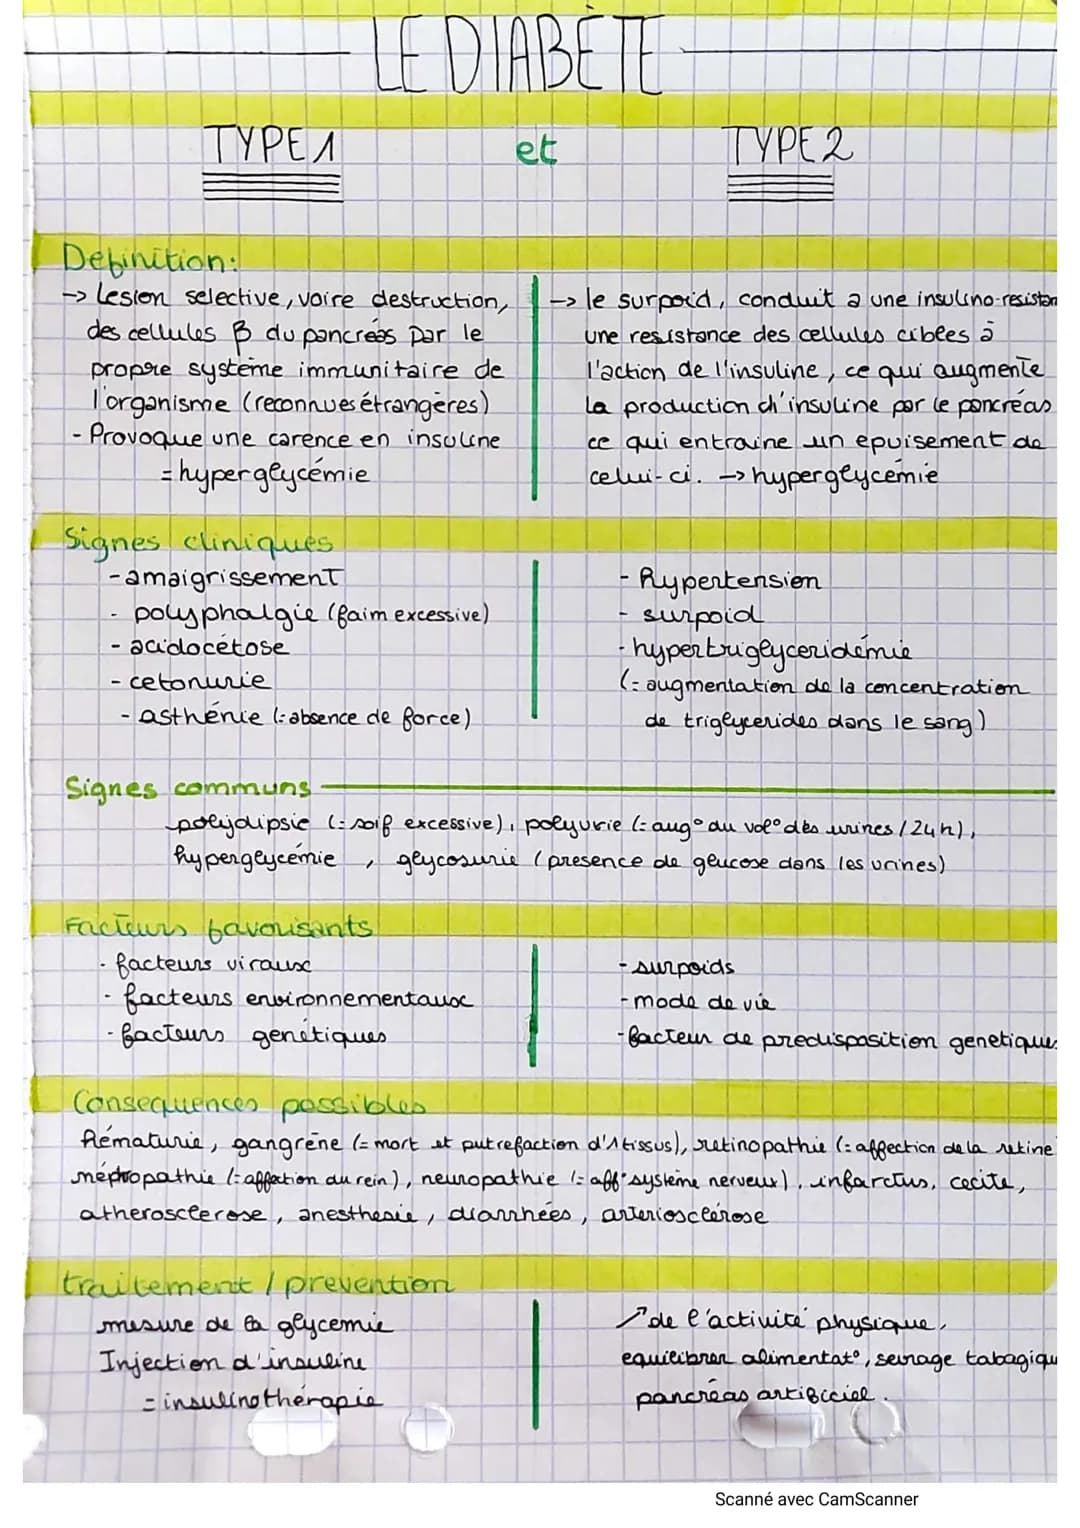 LE DIABÈTE
TYPE 1 et TYPE 2
Definition:
-> Lesion selective, voire destruction,
des cellules β du pancréas par le
propre système immunitaire de
l'organisme (reconnues étrangères)
- Provoque une carence en insuline
= hyperglycémie
-> le surpoid, conduit a une insulino-resistan
une resistance des cellules ciblees à
l'action de l'insuline, ce qui augmente
la production d'insuline par le pancréas
ce qui entraine un epuisement de
celui-ci. -> hyperglycémie
Signes cliniques
- amaigrissement
- polyphalgie (faim excessive)
- acidocétose
- cetonurie
- asthénie (= absence de force)
- Hypertension
- surpoid
- hypertriglyceridémie
(= augmentation de la concentration
de triglycerides dans le sang)
Signes communs
polydipsie (= soif excessive), polyurie (= aug° du vol° des urines / 24h),
hyperglycémie, glycosurie (presence de glucose dans les urines)
Facteurs favorisants
- facteurs viraux
- facteurs environnementaux
- facteurs genétiques
- surpoids
- mode de vie
- facteur de predisposition genetique.
Consequences possibles
Hématurie, gangrène (= mort et putrefaction d'1 tissus), retinopathie (= affection de la retine
néphropathie (= affection du rein), neuropathie (= aff° système nerveux), infarctus, cecite,
atherosclerose, anesthesie, diarrhées, arteriosclérose
traitement / prevention
mesure de la glycemie
Injection d'insuline
= insulinothérapie
↗ de l'activité physique,
equilibrer alimentat°, sevrage tabagiqu
pancréas artificiel.
Scanné avec CamScanner